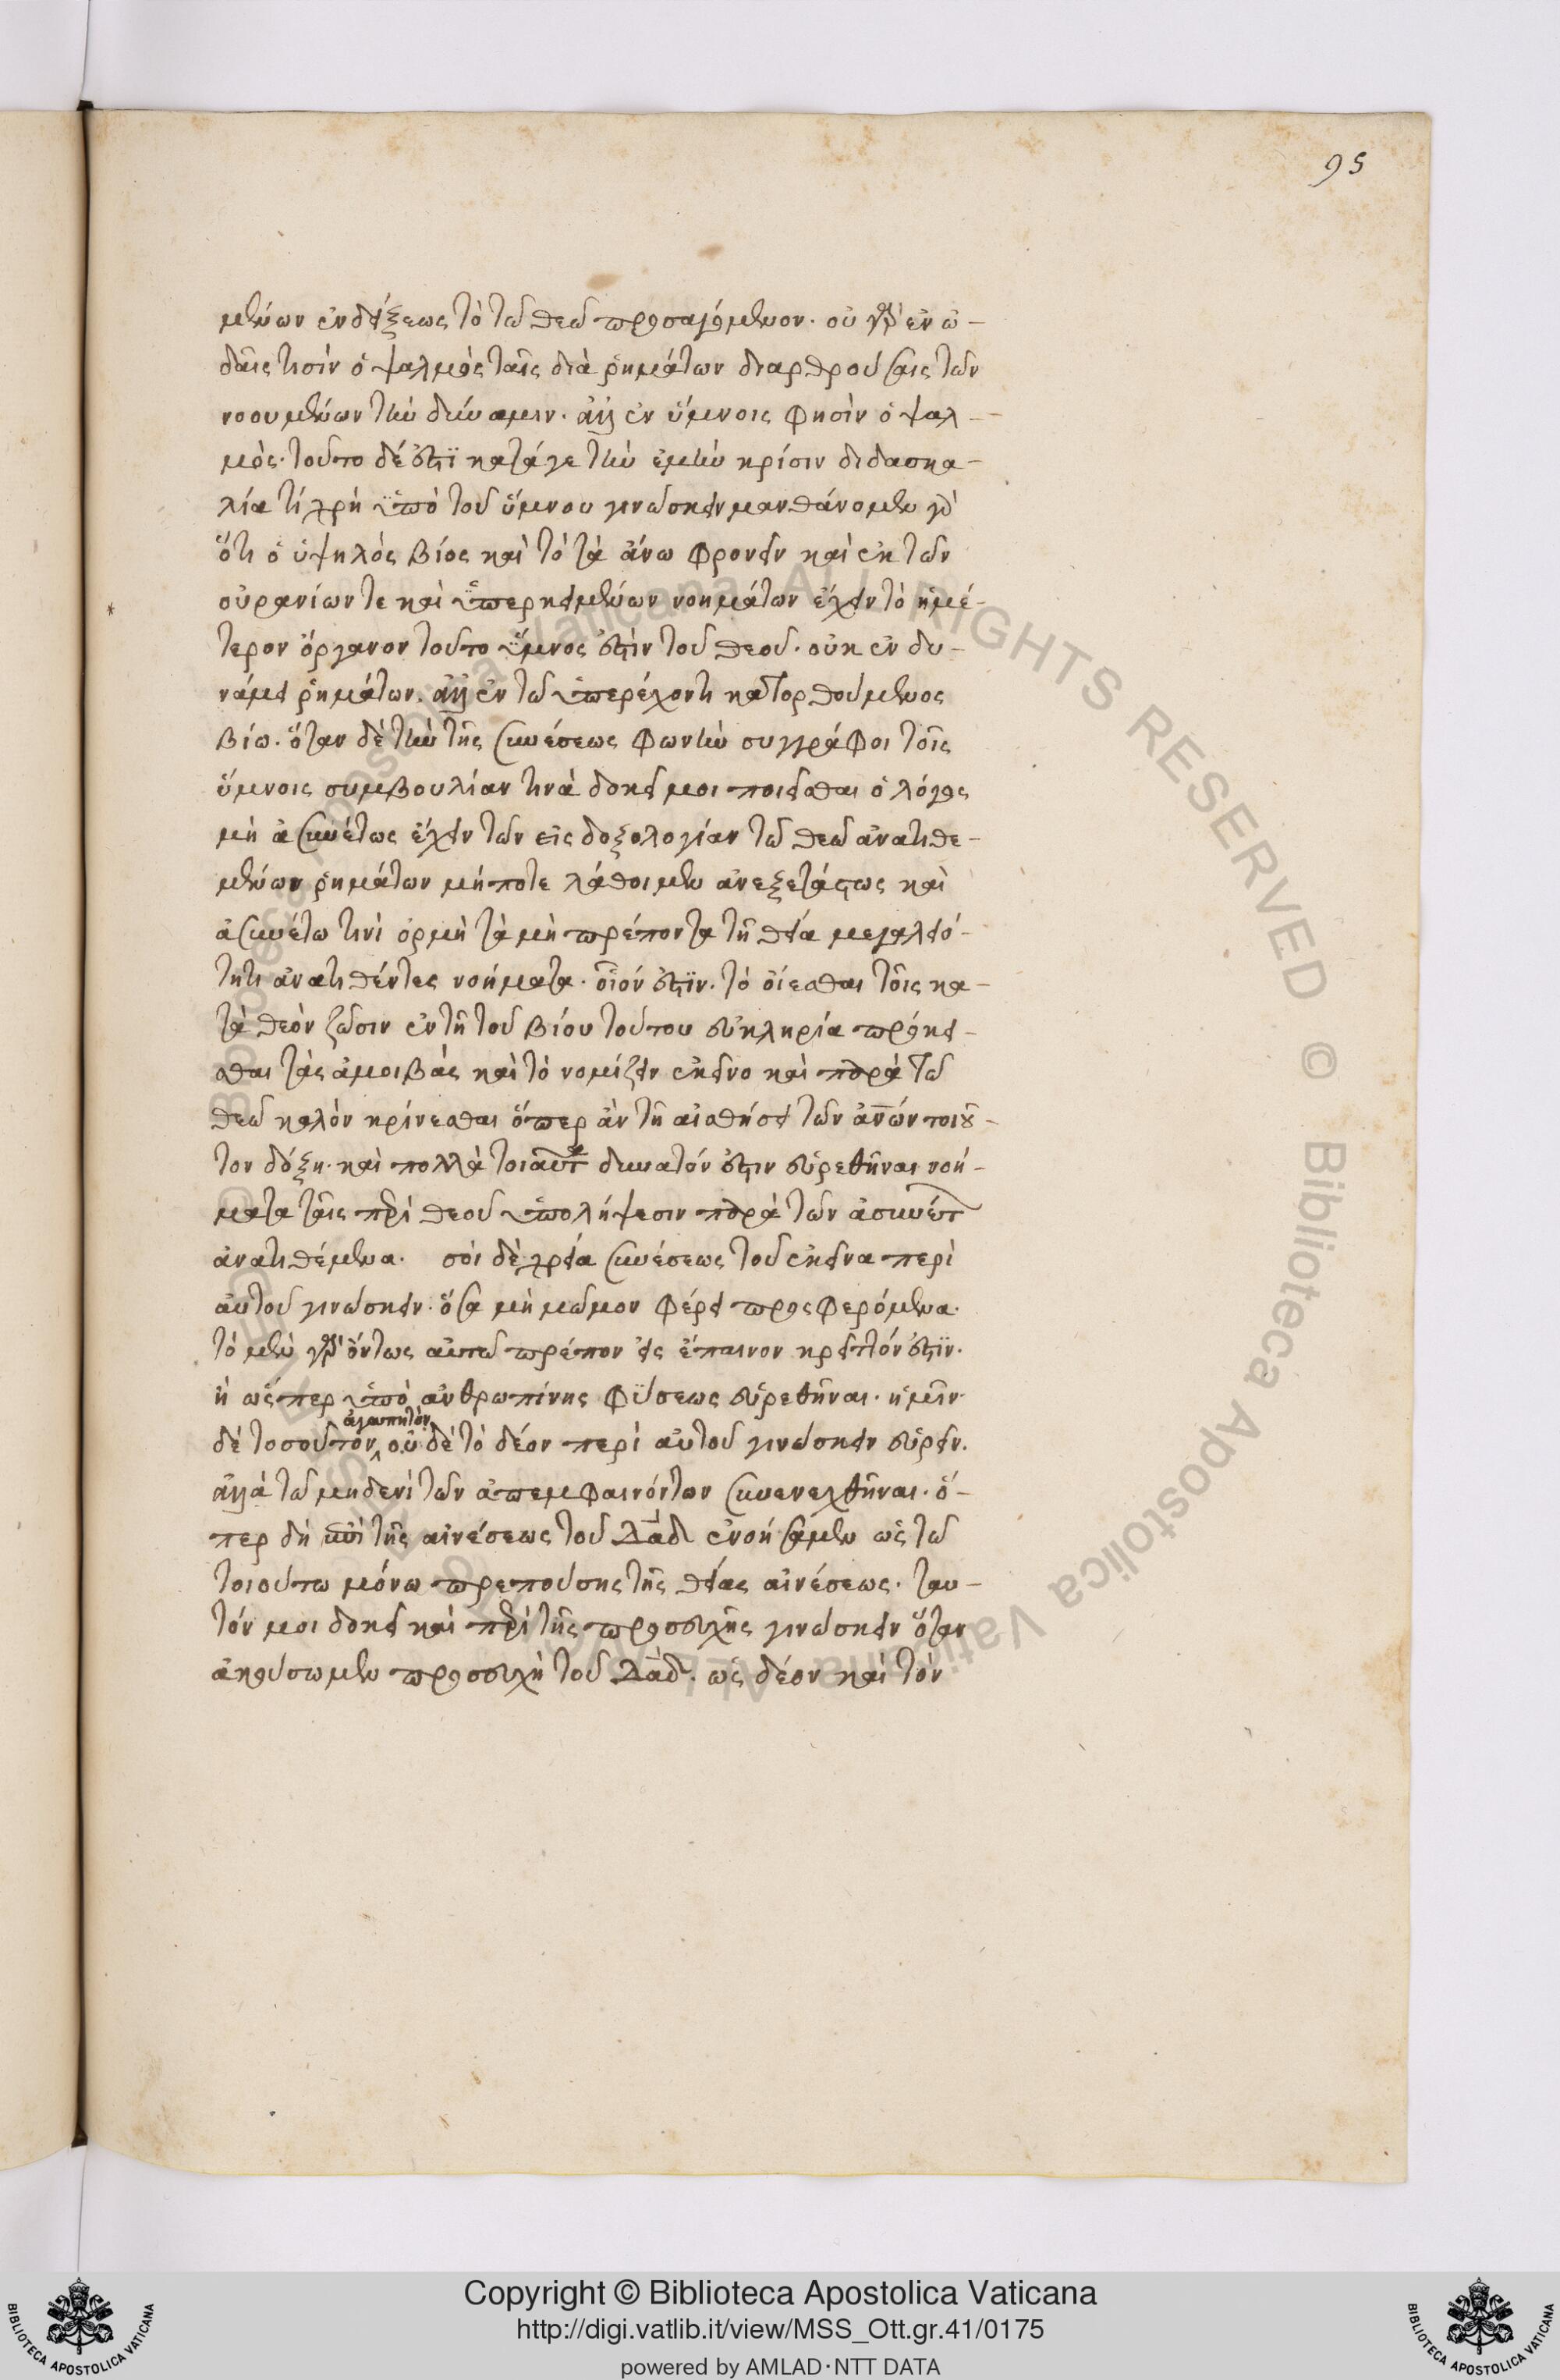 95
μένων ἐνδείξεως τὸ τῶ θεῶ προσαγόμενον. οὐ γὰρ ἐν ὠ-
δαῖς τισὶν ὁ ψαλμὸς ταῖς διὰ ῥημάτων διαρθρούσαις τῶν
νοουμένων τὴν δύναμιν. ἀλλ' ἐν ὕμνοις φησὶν ὁ ψαλ-
μὸς. τοῦτο δέ ἐστι κατάγε τὴν ἐμὴν κρίσιν διδασκα-
λία τί χρὴ ὑπὸ τοῦ ὕμνου γινώσκειν μανθάνομεν γὰρ
ὅτι ὁ ὑψηλὸς βίος καὶ τὸ τὰ ἄνω φρονεῖν καὶ ἐκ τῶν
οὐρανίων τε καὶ ὑπερκειμένων νοημάτων ἔχειν τὸ ἡμέ-
τερον ὄργανον τοῦτο ὕμνος ἐστὶν τοῦ θεοῦ. οὐκ ἐν δυ-
νάμει ῥημάτων. ἀλλ' ἐν τῶ ὑπερέχοντι κατορθούμενος
βίω. ὅταν δὲ τὴν τῆς συνέσεως φωνὴν συγγράφοι τοῖς
ὕμνοις συμβουλίαν τινὰ δοκεῖ μοι ποιεῖσθαι ὁ λόγος
μὴ ἀσυνέτως ἔχειν τῶν εἰς δοξολογίαν τῶ θεῶ ἀνατιθε-
μένων ῥημάτων μήποτε λάθοιμεν ἀνεξετάστως καὶ
ἀσυνέτω τινὶ ὁρμὴ τὰ μὴ πρέποντα τῆ θεία μεγαλειό-
τητι ἀνατιθέντες νοήματα. οἷόν ἐστιν. τὸ οἴεσθαι τοῖς κα-
τὰ θεὸν ζῶσιν ἐν τῆ τοῦ βίου τούτου εὐκληρία προκεῖ-
σθαι τὰς ἀμοιβὰς καὶ τὸ νομίζειν ἐκεῖνο καὶ παρὰ τῶ
θεῶ καλὸν κρίνεσθαι ὅπερ ἂν τῆ αἰσθήσει τῶν ἀνων τοιοῦ-
τον δόξη. καὶ πολλὰ τοιαῦτα δυνατόν ἐστιν εὑρεθῆναι νοή-
ματα ταῖς περὶ θεοῦ ὑπολήψεσιν παρὰ τῶν ἀσυνέτων
ἀνατιθέμενα. σοὶ δὲ χρεία συνέσεως τοῦ ἐκεῖνα περὶ
αὐτοῦ γινώσκειν. ὅσα μὴ μῶμον φέρει προςφερόμενα.
τὸ μὲν γὰρ ὄντως αὐτῶ πρέπον εἰς ἔπαινον κρεῖττόν ἐστιν.
ἢ ὥςπερ ὑπὸ ἀνθρωπίνης φύσεως εὑρεθῆναι. ἡμῖν
ἀγαπητὸν
δὲ τοσοῦτον οὐ δὲ τὸ δέον περὶ αὐτοῦ γινώσκειν εὑρεῖν.
ἀλλὰ τῶ μηδενὶ τῶν ἀπεμφαινόντων συνενεχθῆναι. ὅ-
περ δὴ καὶ ἐπὶ τῆς αἰνέσεως τοῦ Δαδ ἐνοήσαμεν ὡς τῶ
τοιούτω μόνω πρεπούσης τῆς θείας αἰνέσεως. ταυ-
τόν μοι δοκεῖ καὶ περὶ τῆς προσευχῆς γινώσκειν ὅταν
ἀκούσωμεν προσευχὴ τοῦ Δαδ. ὡς δέον καὶ τὸν
Copyright © Biblioteca Apostolica Vaticana
http://digi.vatlib.it/view/MSS_Ott.gr.41/0175
powered by AMLAD·NTT DATA
BIBLIOTECA APOSTOLICA VATICANA
BIBLIOTECA APOSTOLICA VATICANA